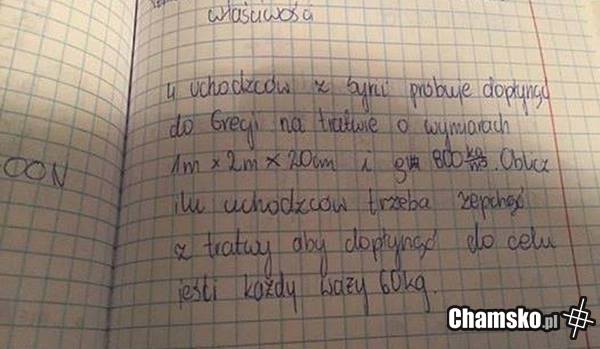 właściwości
4 uchodzców z Syrii próbuje dopłynąć
do Grecji na tratwie o wymiarach
OON
1m x 2m x 20cm i 800 kg/m³. Oblicz
ilu uchodzców trzeba zepchąć
z tratwy aby dopłynąć do celu
jeśli każdy waży 60kg.
Chamsko.pl